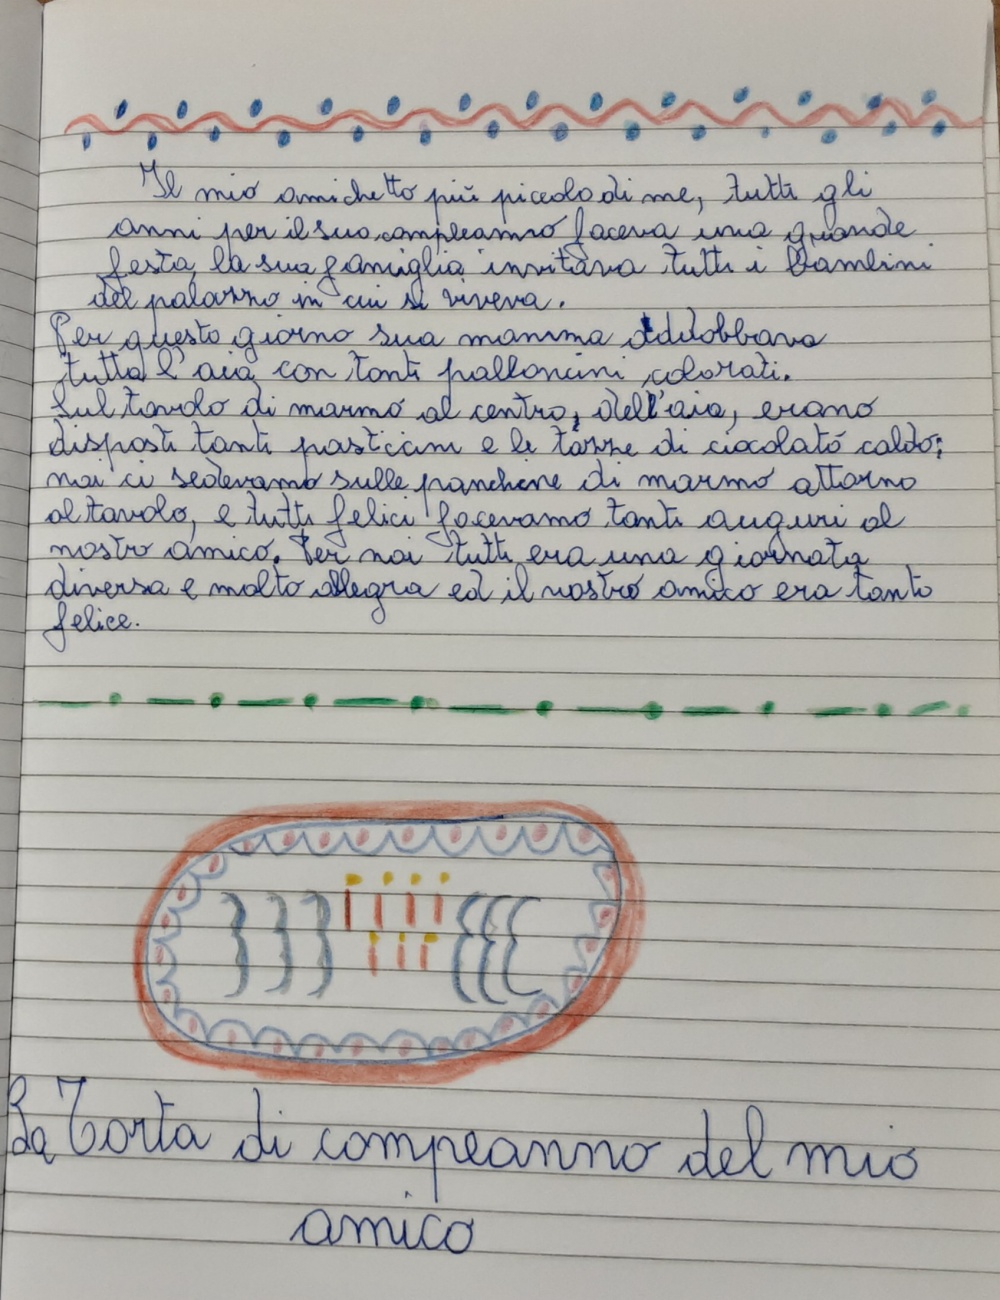 Il mio amichetto più piccolo di me, tutti gli
anni per il suo compleanno faceva una grande
festa, la sua famiglia invitava tutti i bambini
del palazzo in cui si viveva.
Per questo giorno sua mamma addobbava
tutta l'aia con tanti palloncini colorati.
Sul tavolo di marmo al centro, dell'aia, erano
disposti tanti pasticcini e le tazze di ciocolato caldo;
noi ci sedevamo sulle panchine di marmo attorno
al tavolo, e tutti felici facevamo tanti auguri al
nostro amico. Per noi tutti era una giornata
diversa e molto allegra ed il nostro amico era tanto
felice.
La Torta di compeanno del mio
amico